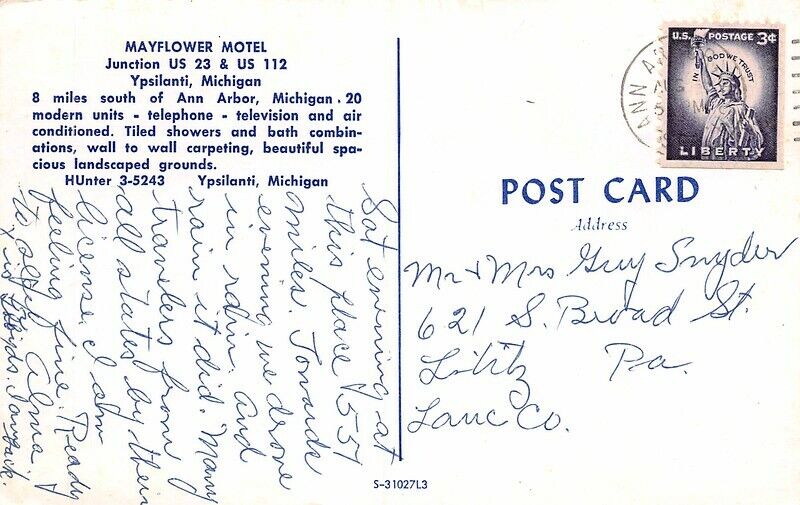 MAYFLOWER MOTEL
Junction US 23 & US 112
Ypsilanti, Michigan
8 miles south of Ann Arbor, Michigan. 20
modern units - telephone - television and air
conditioned. Tiled showers and bath combin-
ations, wall to wall carpeting, beautiful spa-
cious landscaped grounds.
HUnter 3-5243 Ypsilanti, Michigan
Sat evening at
this place 1557
miles. Towards
evening we drove
in rain. And
rain it did. Many
travelers from
all states by their
license. I am
feeling fine. Ready
to Alma &
Lloyds.
U.S. POSTAGE 3¢
IN GOD WE TRUST
LIBERTY
ANN A
POST CARD
Address
Mr & Mrs Guy Snyder
621 S. Broad St.
Lititz Pa.
Lanc Co.
S-31027L3